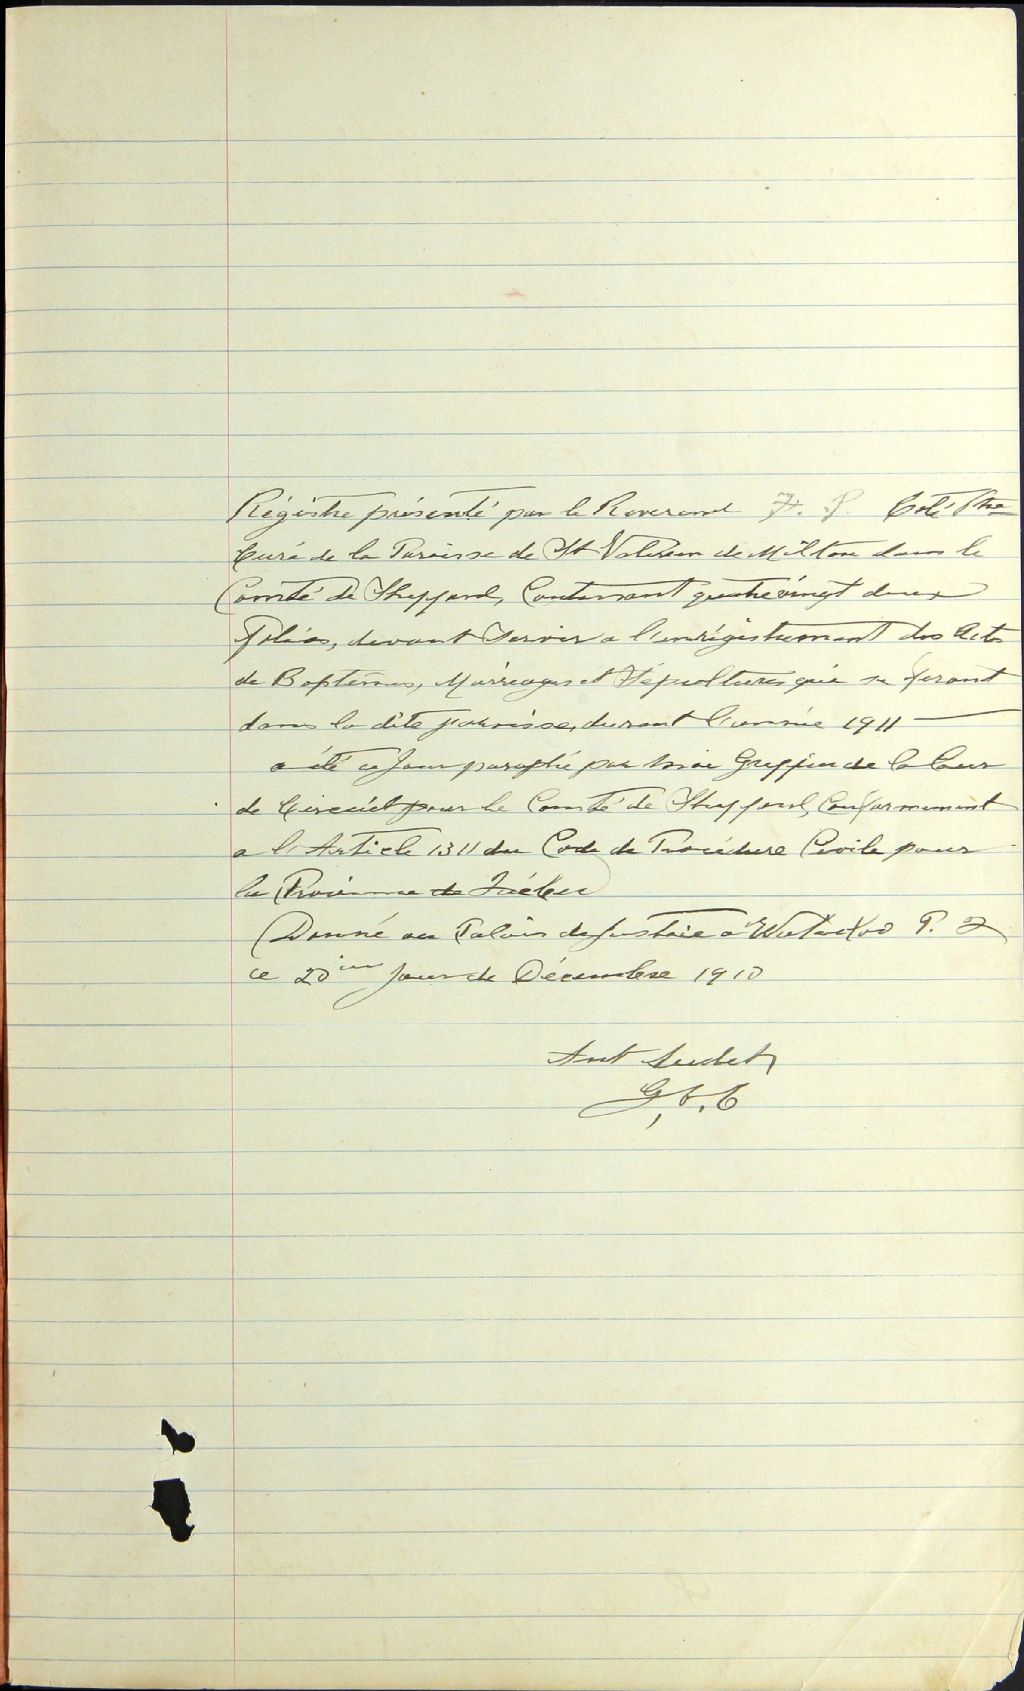 Régistre présenté par le Reverend F. P. Coté Ptre
Curé de la Paroisse de St Valerien de Milton dans le
Comté de Shefford, Contenant quatrevingt deux
Folios, devant Servir a l'enrégistrement des Actes
de Baptêmes, Marriages et Sépultures qui se feront
dans la dite paroisse, durant l'année 1911
a été ce Jour paraphé par moi Greffier de la Cour
de Circuit pour le Comté de Shefford, Conformement
a l'Article 1311 du Code de Procédure Civile pour
la Province de Québec
Donné au Palais de Justice a Waterloo P. Q
ce 20ieme Jour de Décembre 1910
Ant Audet
G, C. C